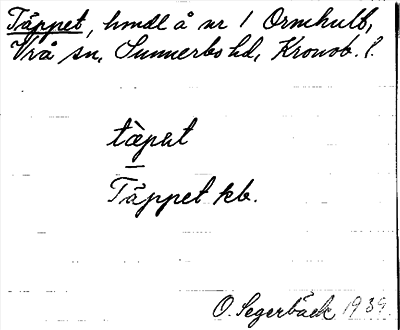 Täppet, hmdl å nr 1 Ormhult,
Vrå sn, Sunnerbo hd, Kronob. l.
tæ̀pat
Täppet kb.
O. Segerbäck 1939.